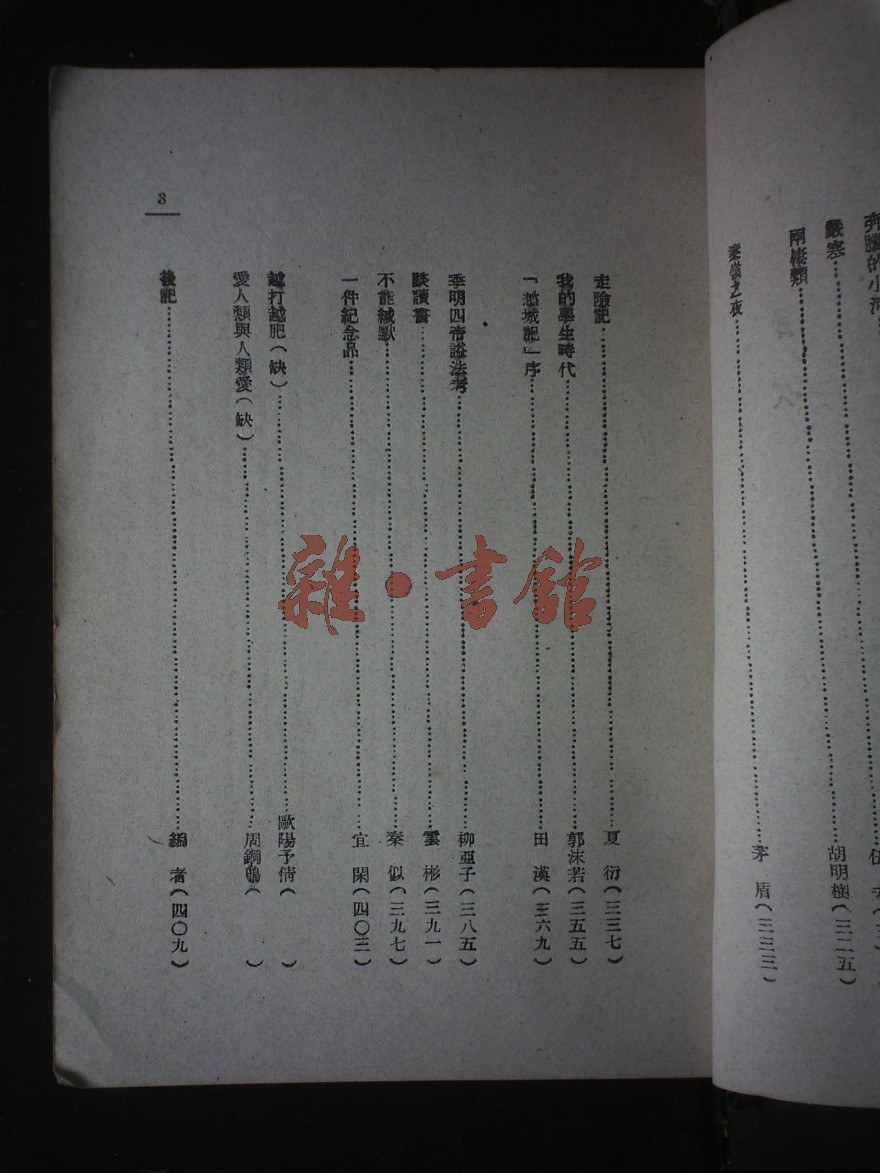 嚴寒……胡明樹(三二五)
兩棲類
秦嶺之夜……茅 盾(三三三)
走險記……夏 衍(三三七)
我的學生時代……郭沫若(三五五)
「愁城記」序……田 漢(三六九)
季明四帝諡法考……柳亞子(三八五)
談讀書……雲 彬(三九一)
不能緘默……秦 似(三九七)
一件紀念品……宜 閑(四〇三)
越打越肥(缺)……歐陽予倩( )
愛人類與人類愛(缺)……周鋼鳴( )
後記……編 者(四〇九)
3
雜·書館